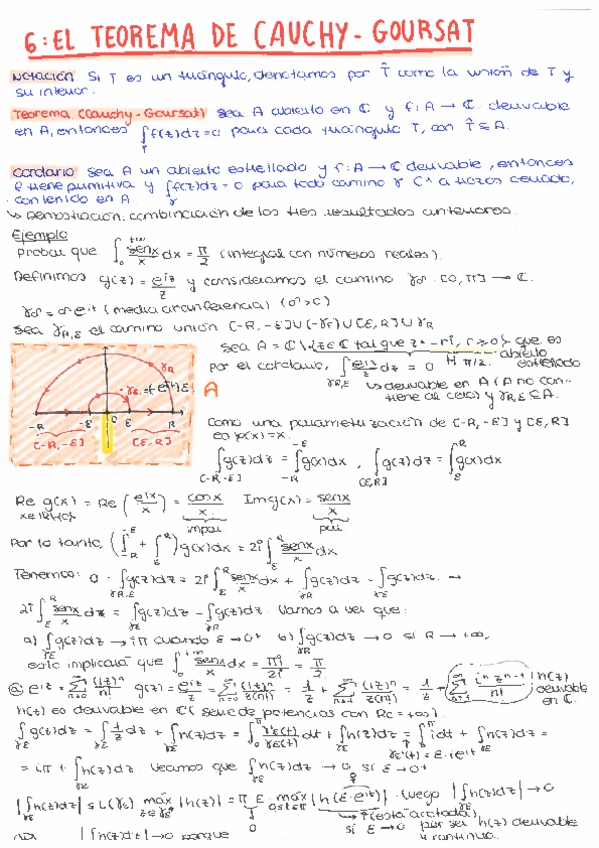 6: EL TEOREMA DE CAUCHY-GOURSAT
Notación Si T es un triángulo, denotamos por T̂ como la unión de T y
su interior.
Teorema (Cauchy-Goursat) Sea A abierto en ℂ y f: A → ℂ derivable
en A, entonces ∫_T f(z)dz = 0 para cada triángulo T, con T̂ ⊆ A.
Corolario Sea A un abierto estrellado y f: A → ℂ derivable, entonces
f tiene primitiva y ∫_γ f(z)dz = 0 para todo camino γ C¹ a trozos cerrado,
contenido en A.
↳ Demostración: combinación de los tres resultados anteriores.
Ejemplo
Probar que ∫_0^{+∞} senx/x dx = π/2 (integral con números reales).
Definimos g(z) = e^{iz}/z y consideramos el camino γσ: [0, π] → ℂ.
γσ = σe^{it} (media circunferencia) (σ>0)
Sea γ_{R,ε} el camino unión [-R, -ε] ∪ (-γε) ∪ [ε, R] ∪ γ_R
Sea A = ℂ\{z∈ℂ tal que z = -ri, r≥0} que es
abierto
estrellado
por el corolario, ∫_{γR,ε} e^{iz}/z dz = 0
↳ derivable en A (A no con-
tiene al cero) y γ_{R,ε} ⊆ A.
γ_R
A
-R -ε 0 ε R
[-R, -ε] [ε, R]
Como una parametrización de [-R, -ε] y [ε, R]
es φ(x) = x.
∫_{[-R,-ε]} g(z)dz = ∫_{-R}^{-ε} g(x)dx, ∫_{[ε,R]} g(z)dz = ∫_ε^R g(x)dx
Re g(x) = Re(e^{ix}/x) = cosx/x Im g(x) = senx/x
x∈ℝ\{0} impar par
Por lo tanto, (∫_{-R}^{-ε} + ∫_ε^R) g(x)dx = 2i ∫_ε^R senx/x dx
Tenemos: 0 = ∫_{γR,ε} g(z)dz = 2i ∫_ε^R senx/x dx + ∫_{γR} g(z)dz - ∫_{γε} g(z)dz →
2i ∫_ε^R senx/x dx = ∫_{γε} g(z)dz - ∫_{γR} g(z)dz. Vamos a ver que:
a) ∫_{γε} g(z)dz → iπ cuando ε → 0⁺ b) ∫_{γR} g(z)dz → 0 si R → +∞,
esto implicará que ∫_0^{+∞} senx/x dx = πi/2i = π/2
ⓐ e^{iz} = Σ_{n=0}^∞ (iz)^n/n! g(z) = e^{iz}/z = Σ_{n=0}^∞ (iz)^n/z(n!) = 1/z + Σ_{n=1}^∞ (iz)^n/z(n!) = 1/z + Σ_{n=1}^∞ i^n z^{n-1}/n! h(z)
derivable
en ℂ.
h(z) es derivable en ℂ (serie de potencias con Rc = +∞).
∫_{γε} g(z)dz = ∫_{γε} 1/z dz + ∫_{γε} h(z)dz = ∫_0^π γ'ε(t)/γε(t) dt + ∫_{γε} h(z)dz = ∫_0^π i dt + ∫_{γε} h(z)dz =
γε'(t) = ε·i·e^{it}
= iπ + ∫_{γε} h(z)dz. Veamos que ∫_{γε} h(z)dz → 0 si ε → 0⁺
|∫_{γε} h(z)dz| ≤ L(γε) máx_{z∈γε} |h(z)| = π ε máx_{0≤t≤π} |h(ε·e^{it})|. Luego |∫_{γε} h(z)dz| → 0
0 (está acotada)
si ε → 0 por ser h(z) derivable
y continua.
|∫h(z)dz| → 0 porque